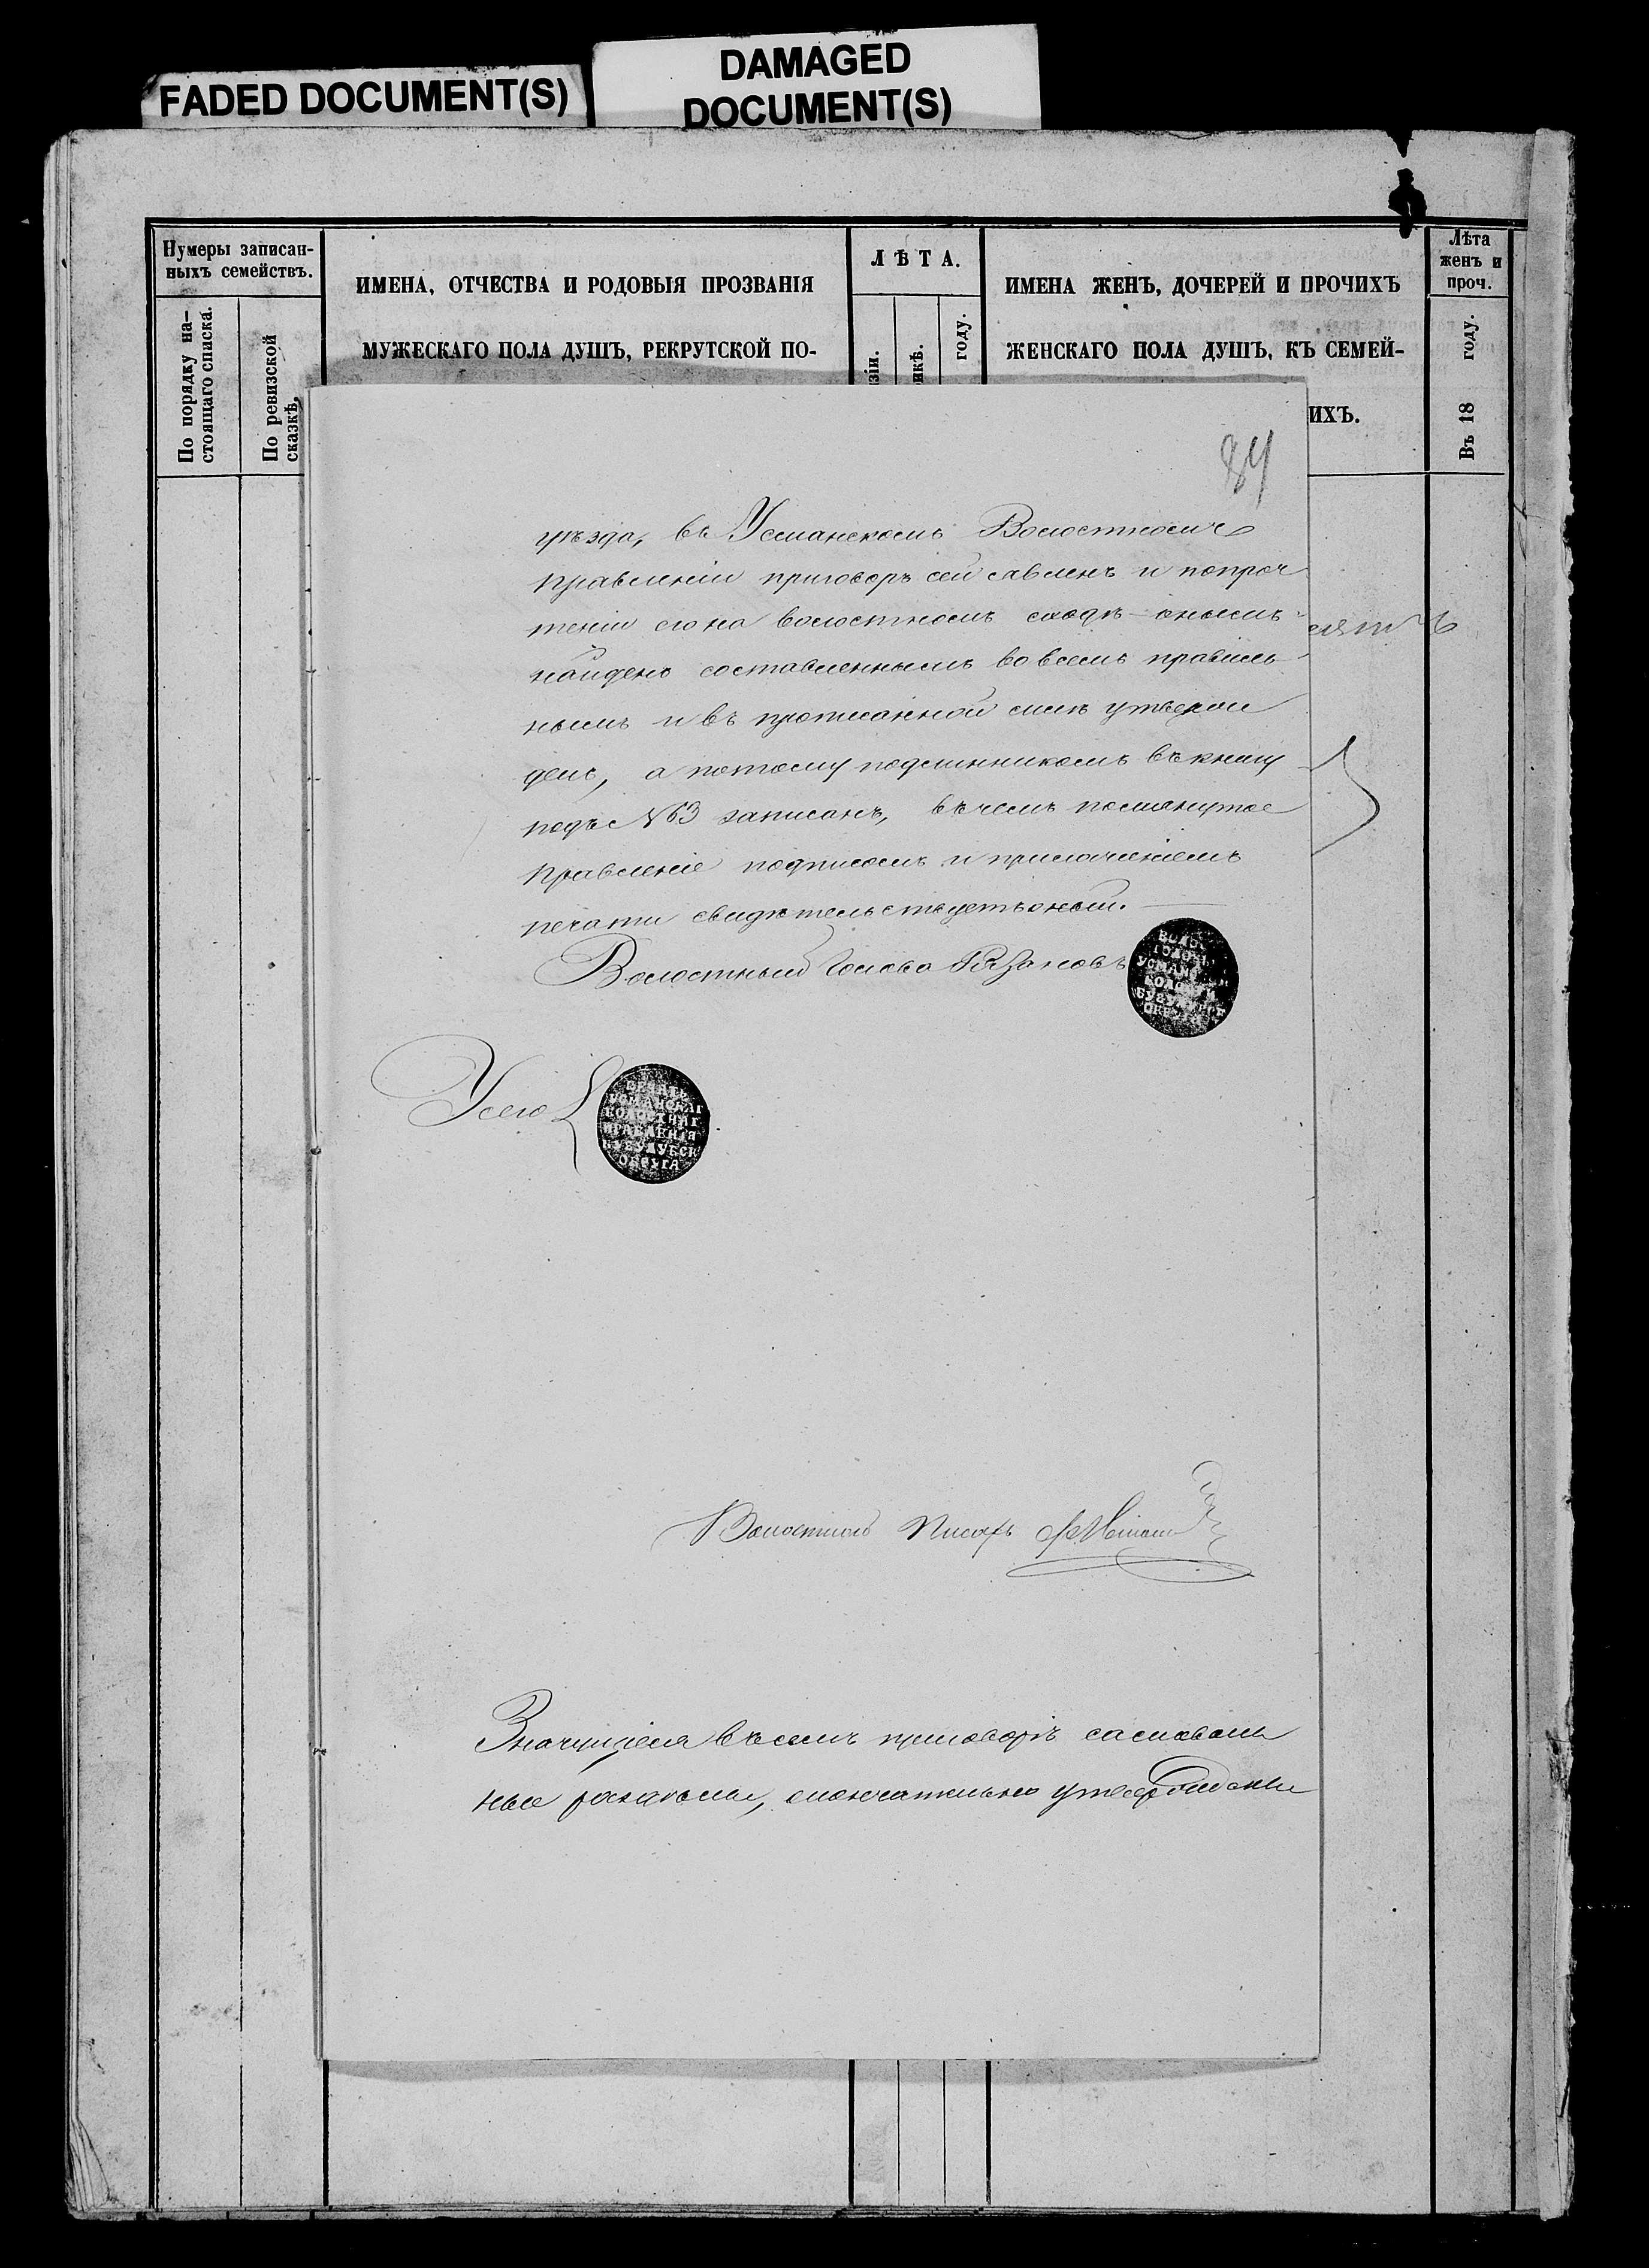 FADED DOCUMENT(S)
DAMAGED
DOCUMENT(S)
Нумеры записан-
ныхъ семействъ.
По порядку на-
стоящаго списка.
По ревизской
сказкѣ.
ИМЕНА, ОТЧЕСТВА И РОДОВЫЯ ПРОЗВАНІЯ
МУЖЕСКАГО ПОЛА ДУШЪ, РЕКРУТСКОЙ ПО-
ЛѢТА.
зіи.
икѣ.
году.
ИМЕНА ЖЕНЪ, ДОЧЕРЕЙ И ПРОЧИХЪ
ЖЕНСКАГО ПОЛА ДУШЪ, КЪ СЕМЕЙ-
ИХЪ.
Лѣта
женъ и
проч.
Въ 18 году.
84
уѣзда, въ Усманскомъ Волостномъ
правленіи приговоръ сей явленъ и попроч
теніи его на волостномъ сходѣ онымъ
найденъ составленнымъ во всемъ правиль
нымъ и въ прописанной силѣ утверж
денъ, а потому подлинникомъ въ книгу
подъ №63 записанъ, въ чемъ помянутое
правленіе подписомъ и приложеніемъ
печати свидѣтельствуетъ оный.
Волостный Голова Рязановъ
ВОЛОС
ГОЛОВЫ
УСМАН
ВОЛОСТИ
БУЗУЛУК
ОКРУГА
Усего
ПЕЧАТЬ
УСМАНСКАГ
ВОЛОСТНАГ
ПРАВЛЕНИЯ
БУЗУЛУКСК
ОКРУГА
Волостной Писарь
Значущіеся въ семъ приговорѣ самовол
ные раздѣлы, окончательно утверждены